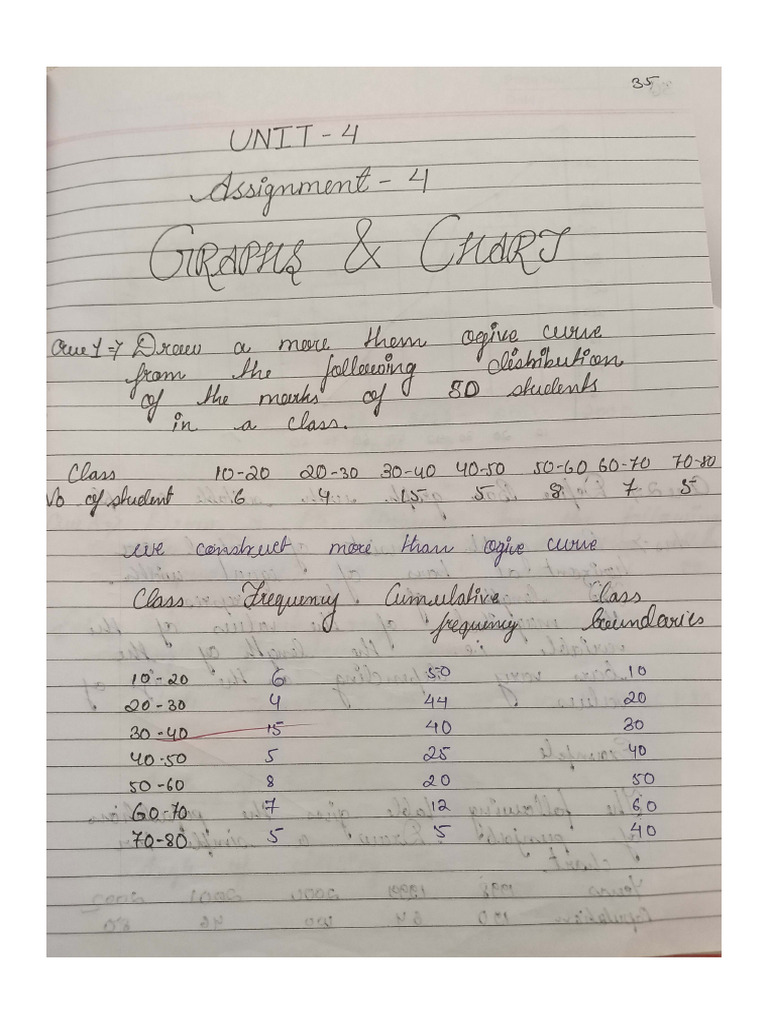 35
UNIT - 4
Assignment - 4
GRAPHS & CHART
Que 1 → Draw a more them ogive curve
from the following distribution
of the marks of 50 students
in a class.
Class 10-20 20-30 30-40 40-50 50-60 60-70 70-80
No of student 6 4 15 5 8 7 5
we construct more than ogive curve
Class Frequency Cumulative Class
frequency boundaries
10-20 6 50 10
20-30 4 44 20
30-40 15 40 30
40-50 5 25 40
50-60 8 20 50
60-70 7 12 60
70-80 5 5 40